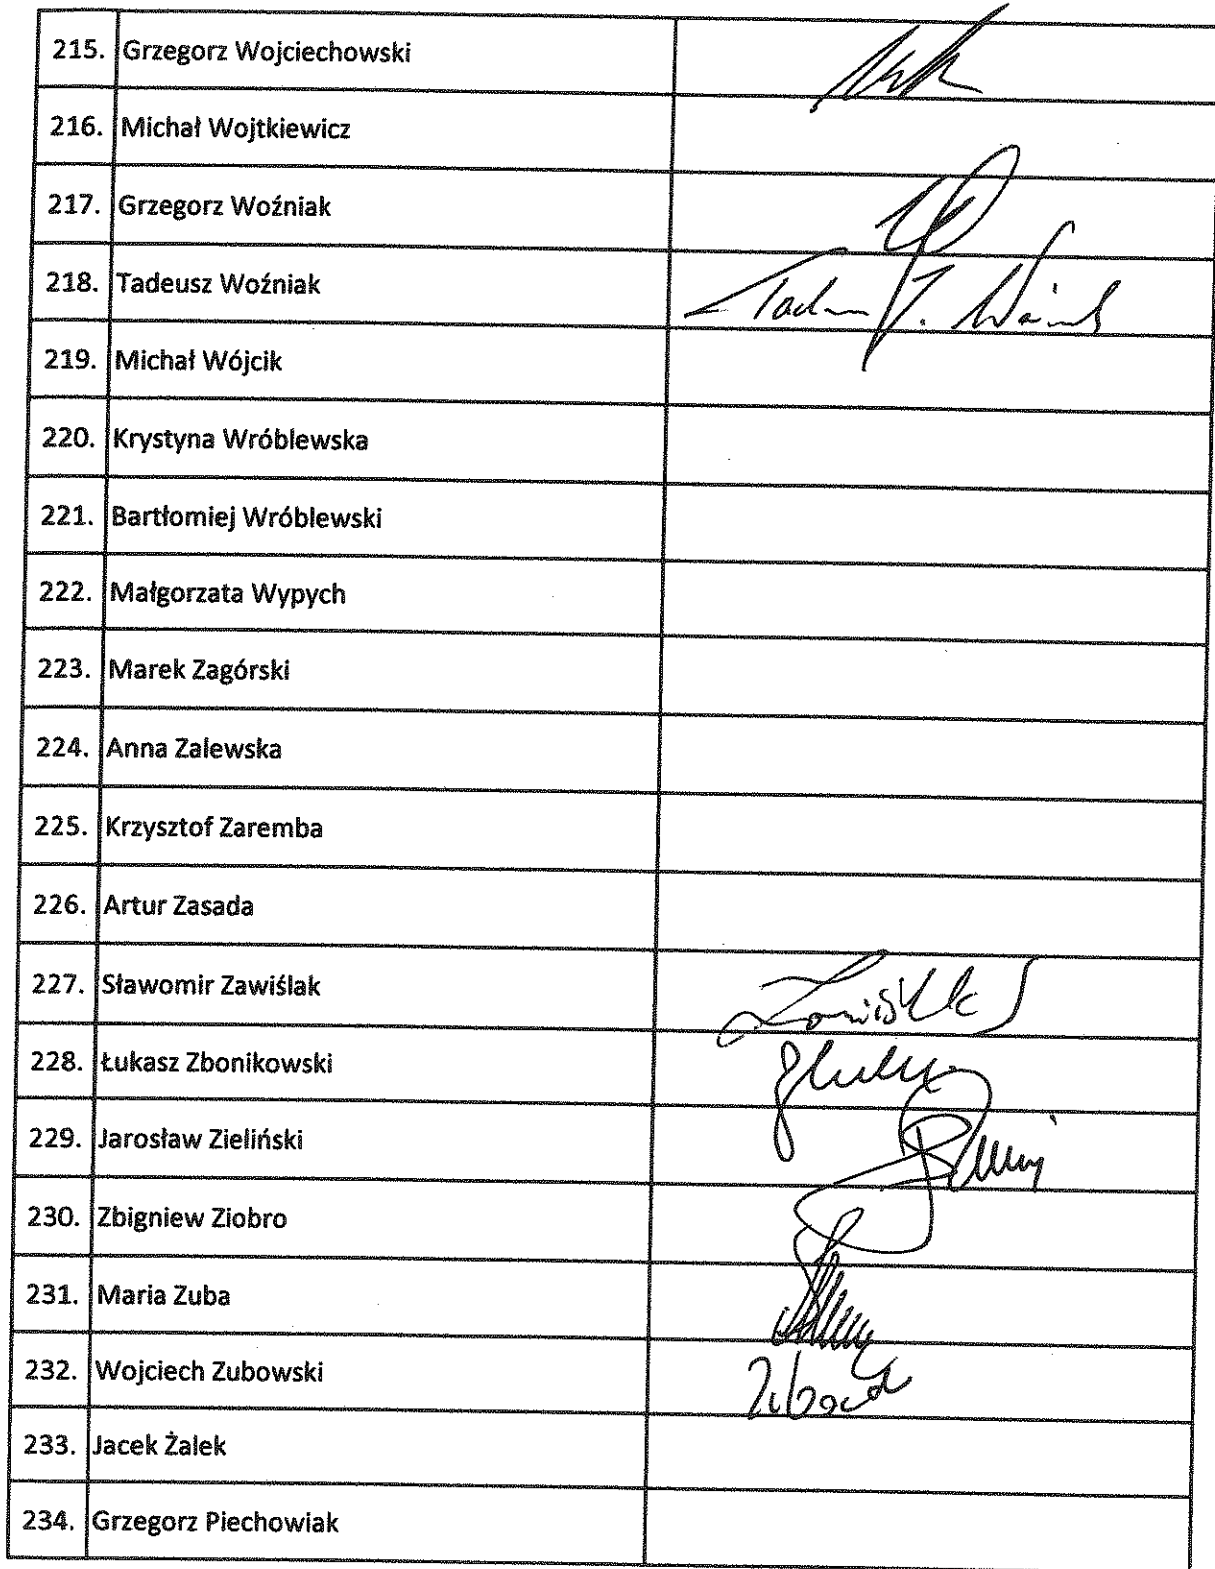 215. Grzegorz Wojciechowski
216. Michał Wojtkiewicz
217. Grzegorz Woźniak
218. Tadeusz Woźniak
219. Michał Wójcik
220. Krystyna Wróblewska
221. Bartłomiej Wróblewski
222. Małgorzata Wypych
223. Marek Zagórski
224. Anna Zalewska
225. Krzysztof Zaremba
226. Artur Zasada
227. Sławomir Zawiślak
228. Łukasz Zbonikowski
229. Jarosław Zieliński
230. Zbigniew Ziobro
231. Maria Zuba
232. Wojciech Zubowski
233. Jacek Żalek
234. Grzegorz Piechowiak